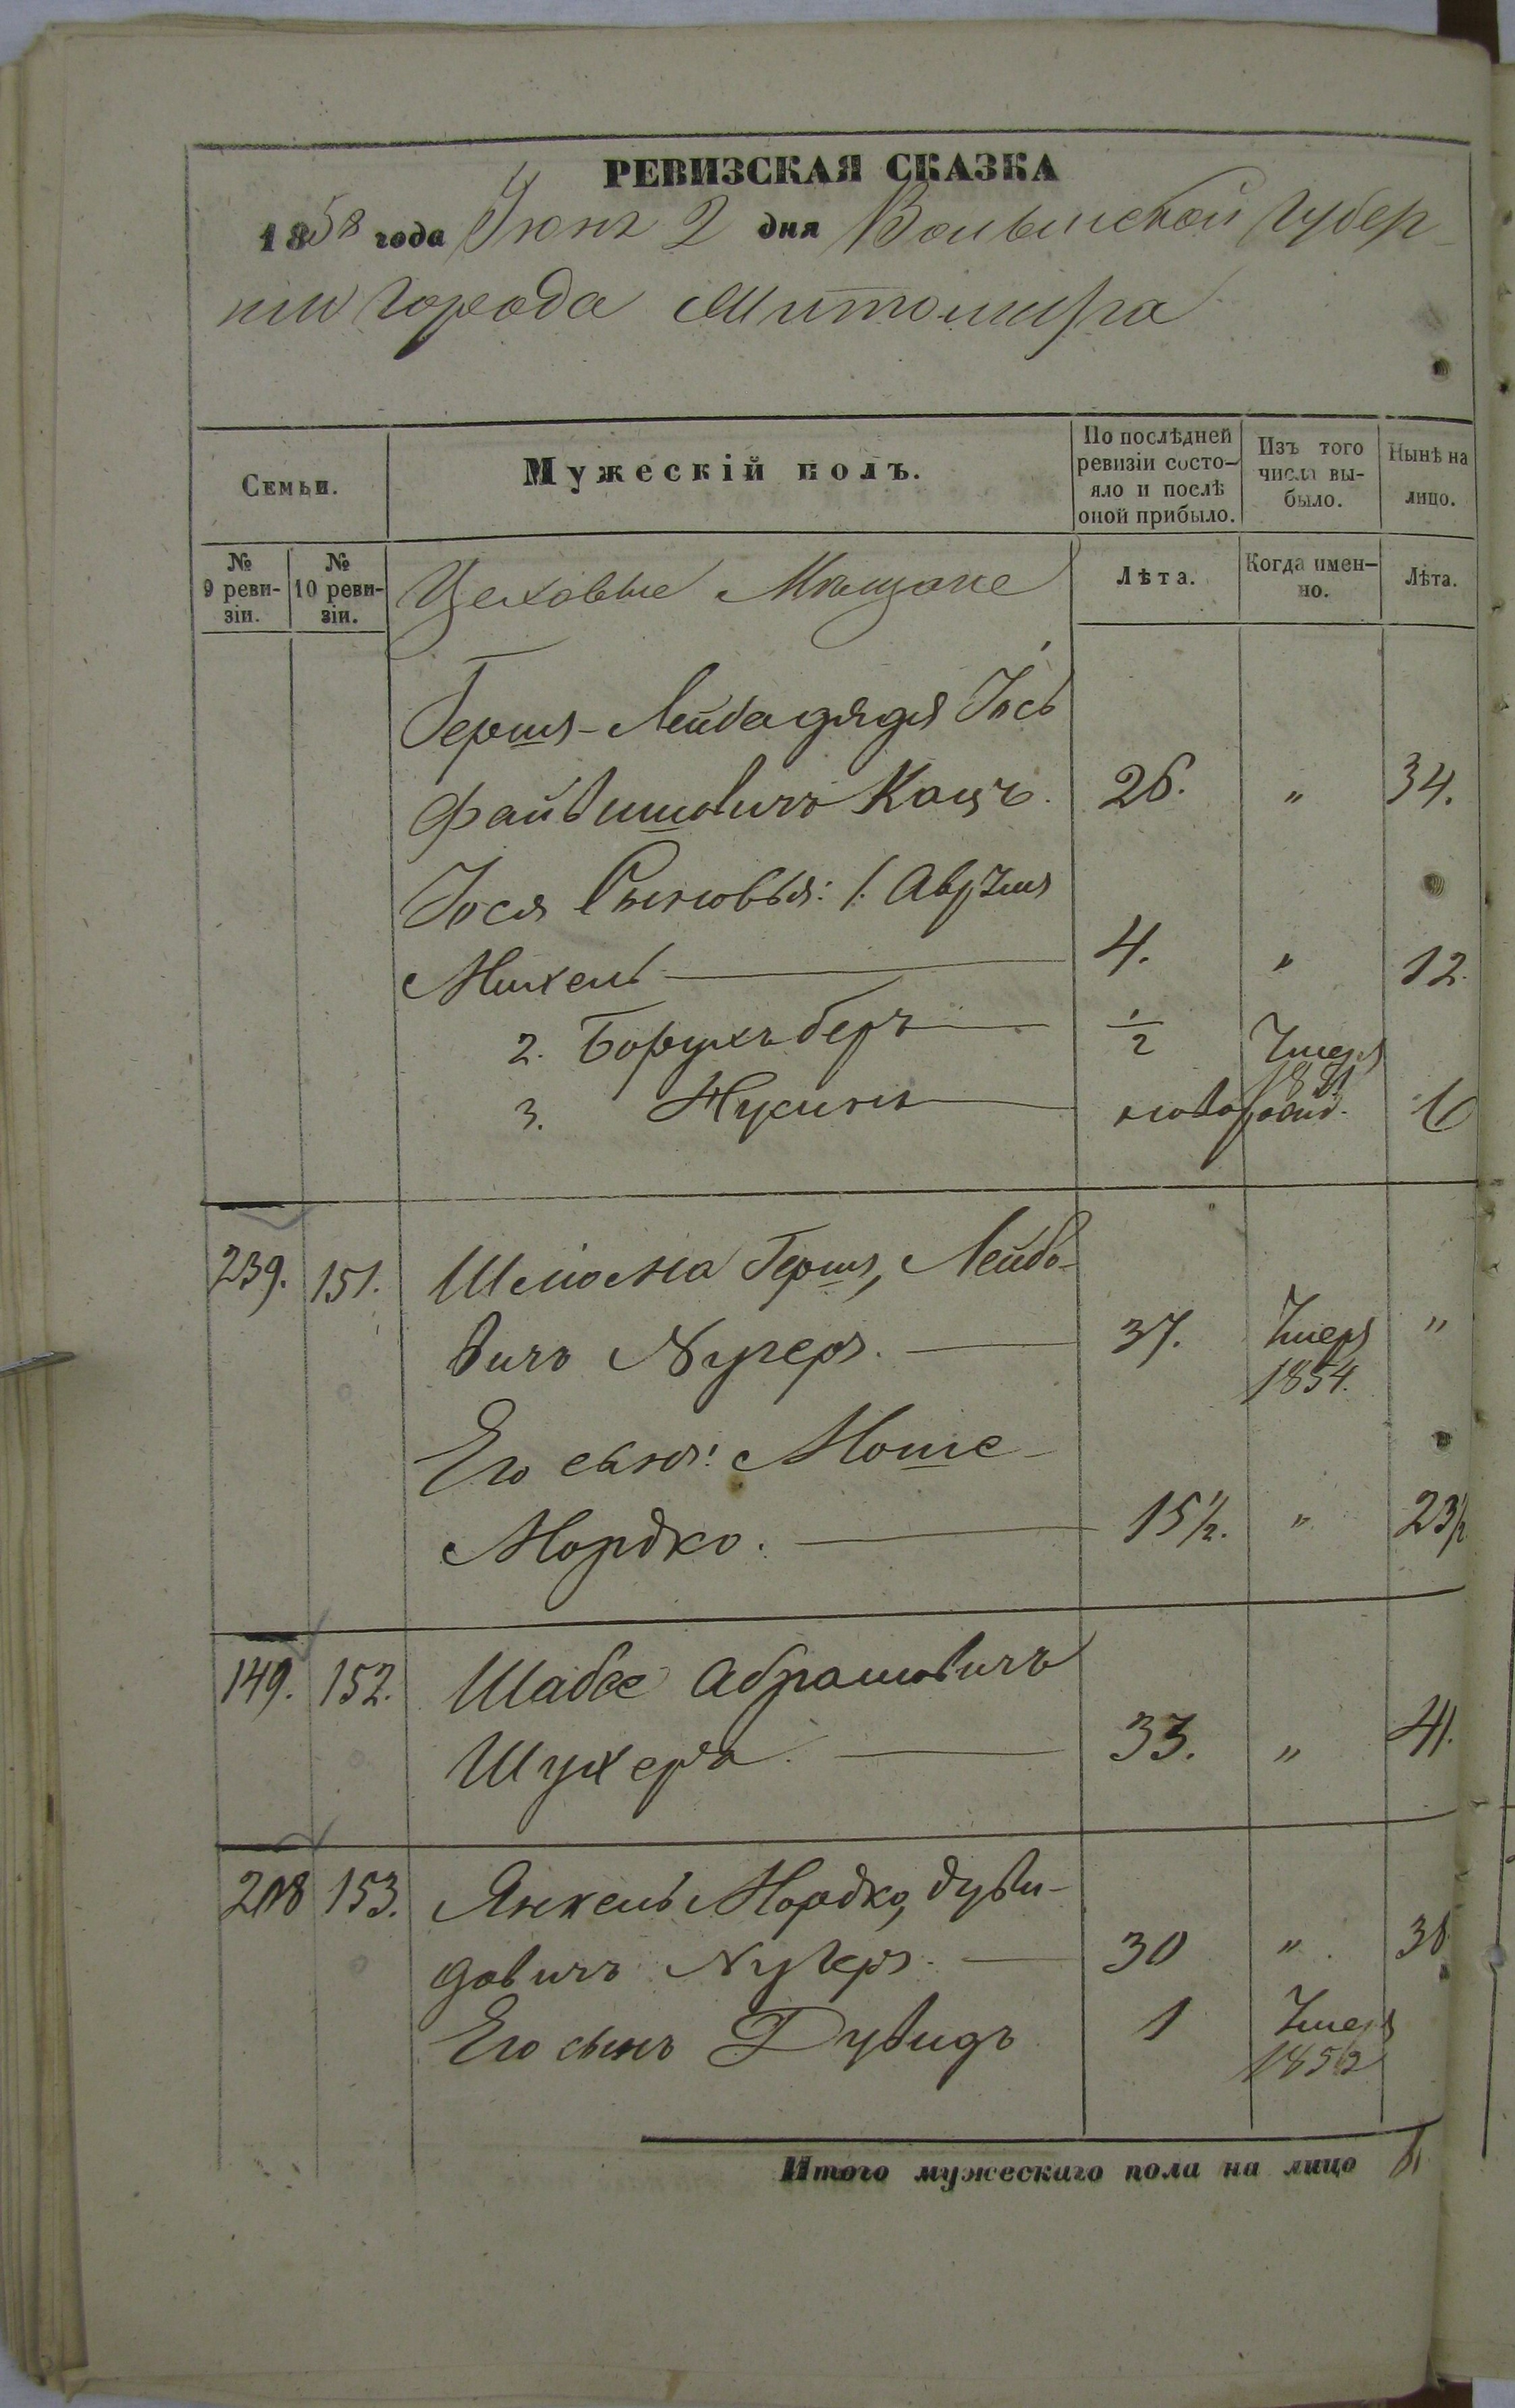 РЕВИЗСКАЯ СКАЗКА
1858 года Июня 2 дня Волынской Губер-
нии города Житомира
Семьи.
Мужескій полъ.
По послѣдней ревизіи состо-яло и послѣ оной прибыло.
Изъ того числа вы-было.
Нынѣ на лицо.
№ 9 реви-зіи.
№ 10 реви-зіи.
Цеховые Мещане
Лѣта.
Когда имен-но.
Лѣта.
Герша-Лейба дядя Іось
Файвишовичъ Кацъ. 26. " 34.
Іося Сыновья: 1. Аврумъ
Михель 4. " 12.
2. Борухъ беръ 1/2 Умеръ 1851
3. Нухимъ новорожд. 6
239. 151. Шлиома Герш, Лейбо-
вичъ 37. Умеръ 1854. "
Его сынъ: Моше-
Мордко. 15 1/2. " 23 1/2
149. 152. Шабсе Абрамовичъ
Шухеръ. 33. " 41.
208 153. Янкель Мордко, Дуви-
довичъ 30 " 38.
Его сынъ Дувидъ 1 Умеръ 1852
Итого мужескаго пола на лицо